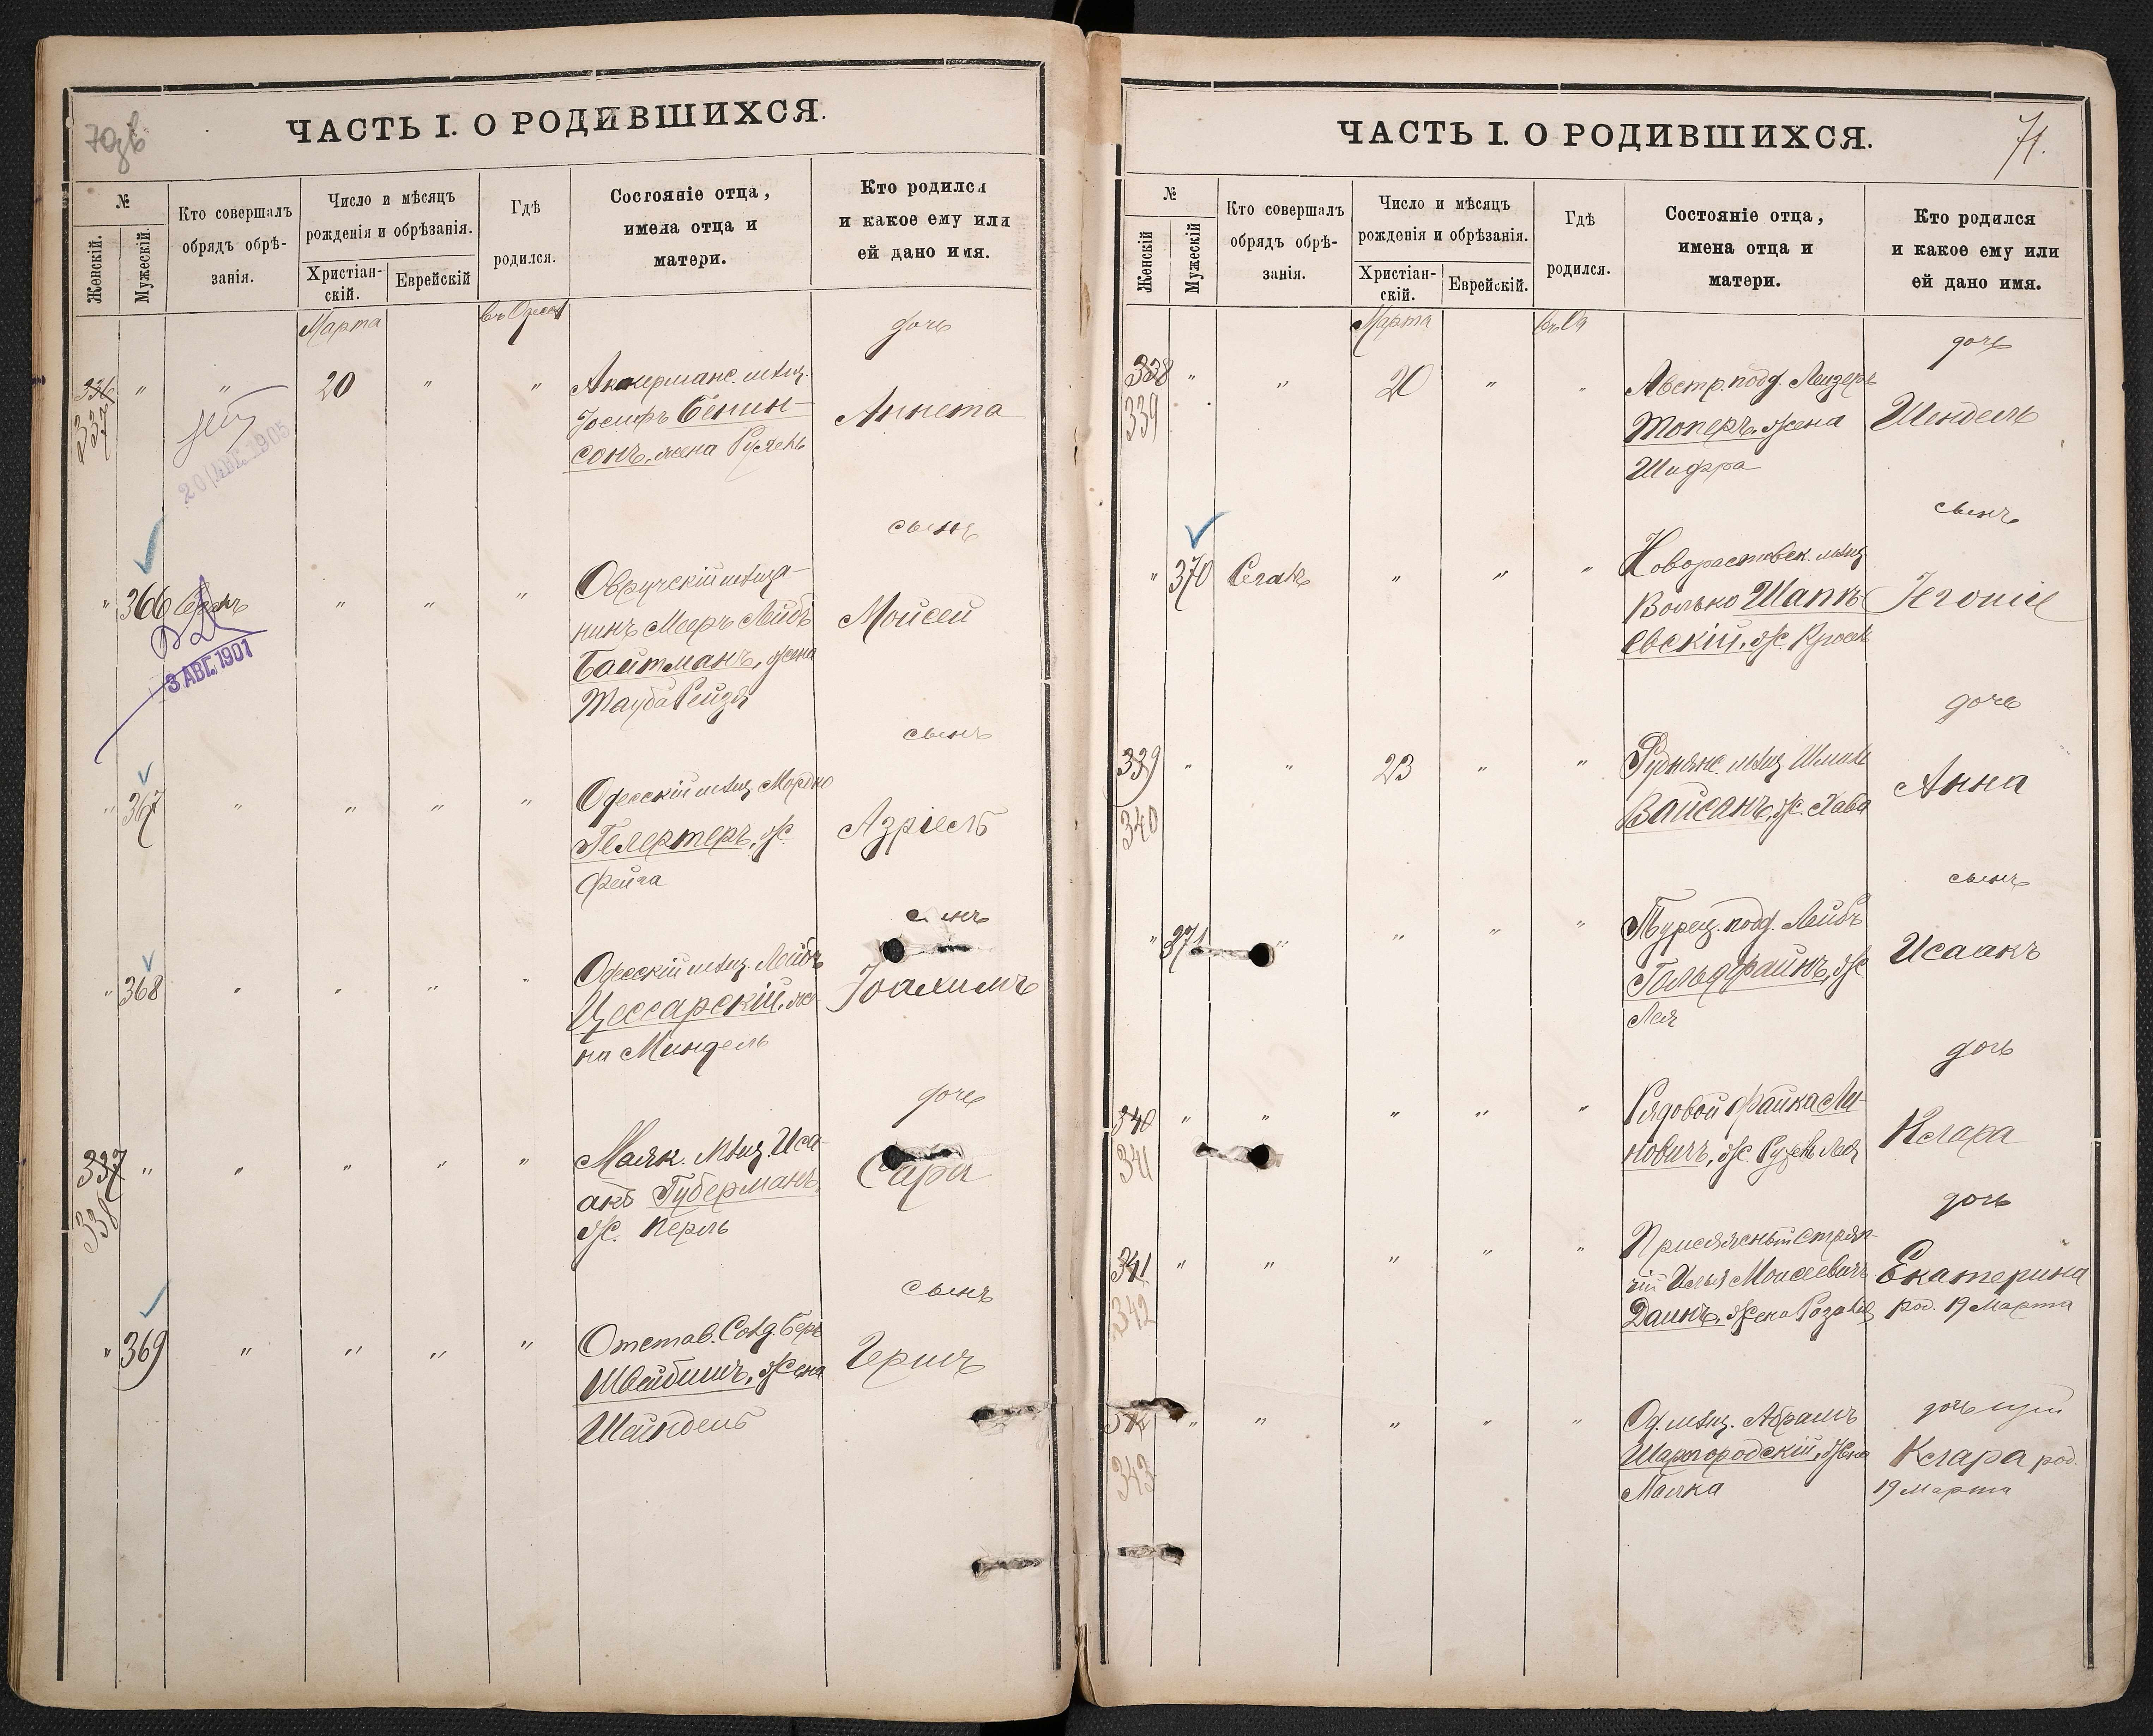 70 об
ЧАСТЬ I. О РОДИВШИХСЯ.
№
Женскій.
Мужескій.
Кто совершалъ
обрядъ обрѣ-
занія.
Число и мѣсяцъ
рожденія и обрѣзанія.
Христіан-
скій.
Еврейскій
Гдѣ
родился.
Состояніе отца,
имена отца и
матери.
Кто родился
и какое ему или
ей дано имя.
Марта
въ Одессѣ
дочь
336 " " 20 " " Аккерманс. мѣщ.
337
Іосифъ Бенин-
Аннета
сонъ, жена Рузя
20 АВГ. 1905
сынъ
" 366 Сеганъ " " " Овручскій мѣща-
нинъ Мееръ Лейбъ
Мойсей
Байтманъ, жена
Тауба Рейзя
3 АВГ. 1901
сынъ
" 367 " " " " Одесскій мѣщ. Мордко
Гелертеръ, ж.
Азріель
Фейга
сынъ
" 368 " " " " Одесскій мѣщ. Лейбъ
Цессарскій, же-
Іоахимъ
на Миндель
дочь
337 " " " " " Маяк. мѣщ. Иса-
338
акъ Губерманъ,
Сара
ж. Перль
сынъ
" 369 " " " " Отстав. Солд. Беръ
Швайбишъ, жена
Гершъ
Шейндель
71.
ЧАСТЬ I. О РОДИВШИХСЯ.
№
Женскій
Мужескій
Кто совершалъ
обрядъ обрѣ-
занія.
Число и мѣсяцъ
рожденія и обрѣзанія.
Христіан-
скій.
Еврейскій.
Гдѣ
родился.
Состояніе отца,
имена отца и
матери.
Кто родился
и какое ему или
ей дано имя.
Марта
въ Од
дочь
338 " " 20 " " Австр. подд. Лейзеръ
339
Топеръ, жена
Шендель
Шифра
сынъ
" 370 Сеганъ " " " Воλько Шапи-
евскій, ж.
дочь
339 " " 23 " " мѣщ. Шмиль
340
Вайсанъ, ж. Хава
Анна
сынъ
" 371 " " " " Турец. подд. Лейбъ
Гольдфайнъ, ж.
Исаакъ
Лея
дочь
340 " " " " " Рядовой Файка Ли-
341
новичъ, ж. Рузя Лея
Клара
дочь
341 " " " " " Присяжный стряп-
чій Илья Моисеевичъ
Екатерина
342
Даинъ, жена Розалія
род. 19 Марта
342 " " " " " Од. мѣщ. Абрамъ
дочь
Шаргородскій, жена
Клара род.
343
Малка
19 Марта